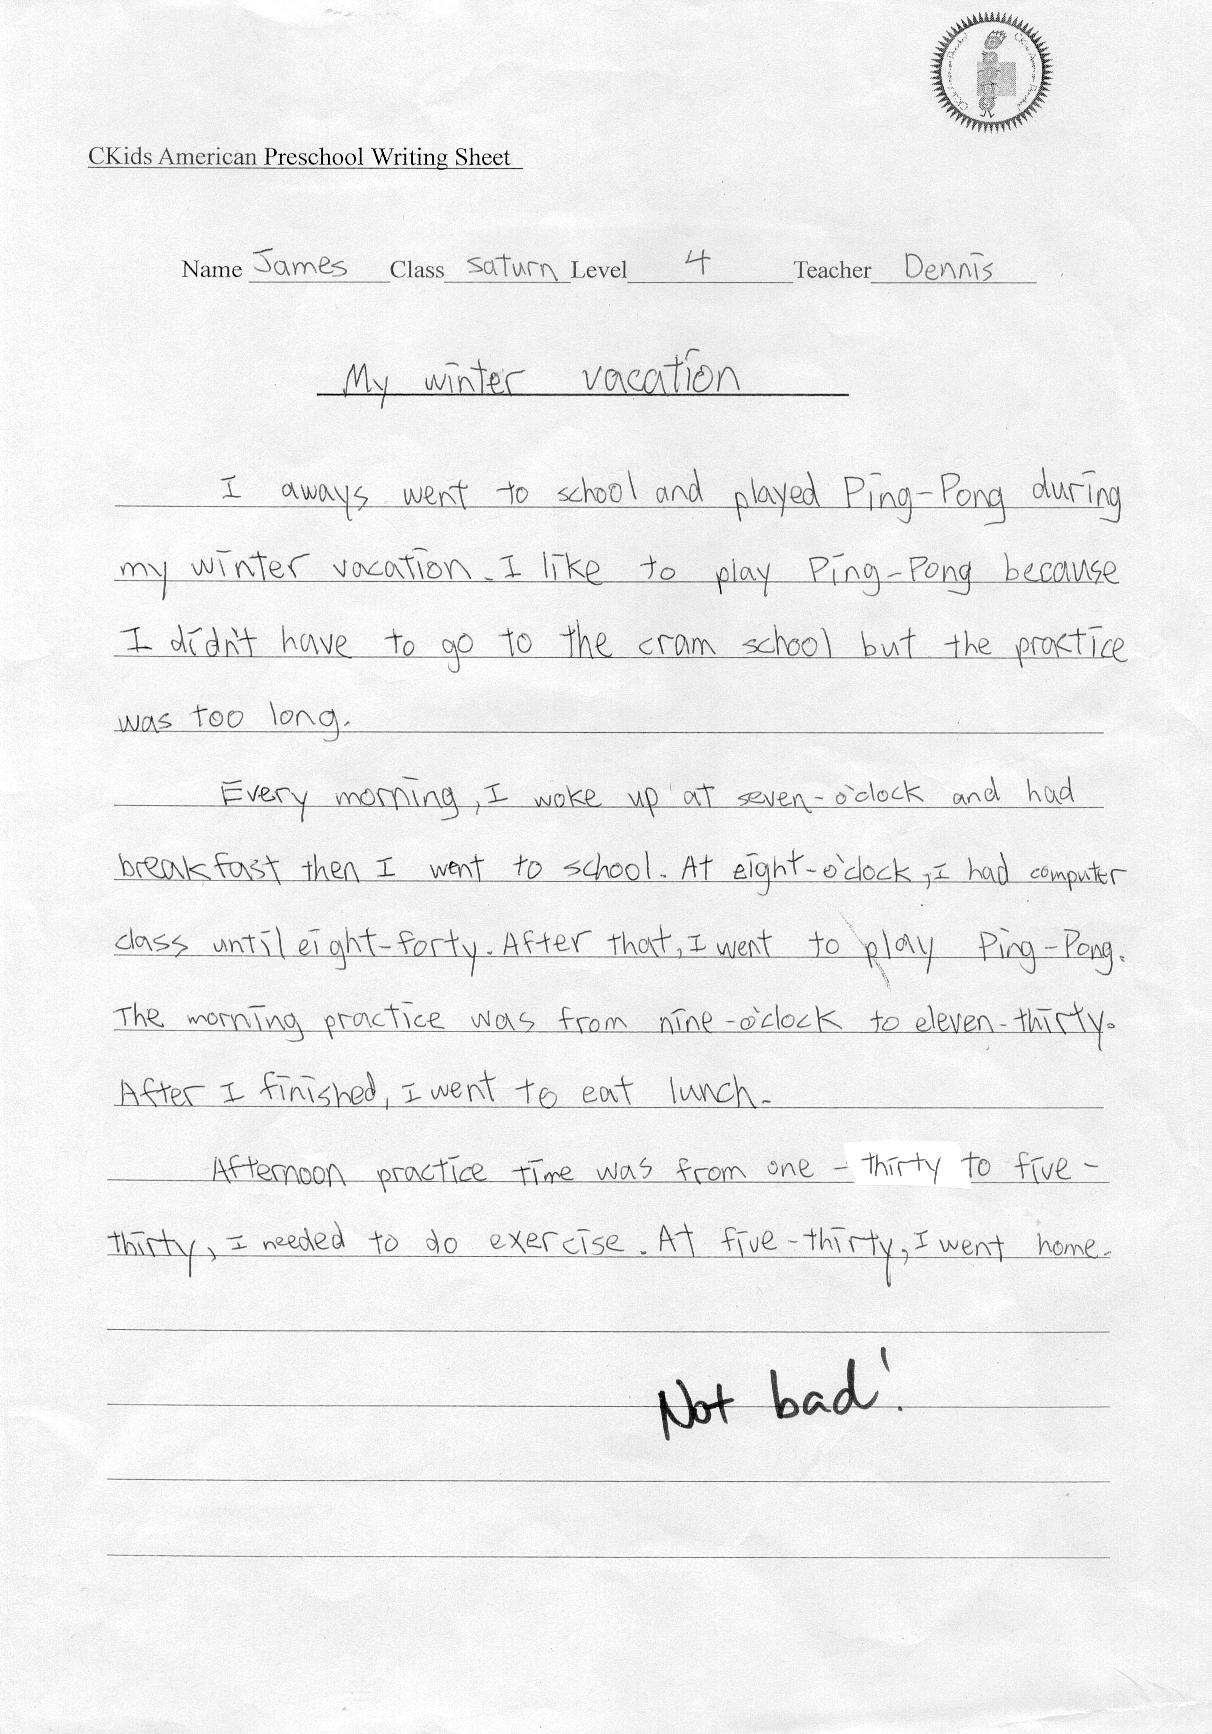 CKids American Preschool Writing Sheet
Name James Class saturn Level 4 Teacher Dennis
My winter vacation
I aways went to school and played Ping-Pong during
my winter vacation. I like to play Ping-Pong because
I didn't have to go to the cram school but the practice
was too long.
Every morning, I woke up at seven-o'clock and had
breakfast then I went to school. At eight-o'clock, I had computer
class until eight-forty. After that, I went to play Ping-Pong.
The morning practice was from nine-o'clock to eleven-thirty.
After I finished, I went to eat lunch.
Afternoon practice time was from one-thirty to five-
thirty, I needed to do exercise. At five-thirty, I went home.
Not bad!